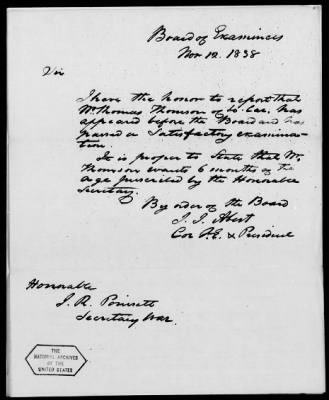 Board of Examiners
Nov 12. 1838
Sir
I have the honor to report that
Mr Thomas Thomson of So. Car. has
appeared before the Board and has
passed a Satisfactory examina-
tion.
It is proper to State that Mr
Thomson wants 6 months of the
age prescribed by the Honorable
Secretary.
By order of the Board
J. J. Abert
Col T.E. & President
Honorable
J. R. Poinsett
Secretary War.
THE
NATIONAL ARCHIVES
OF THE
UNITED STATES